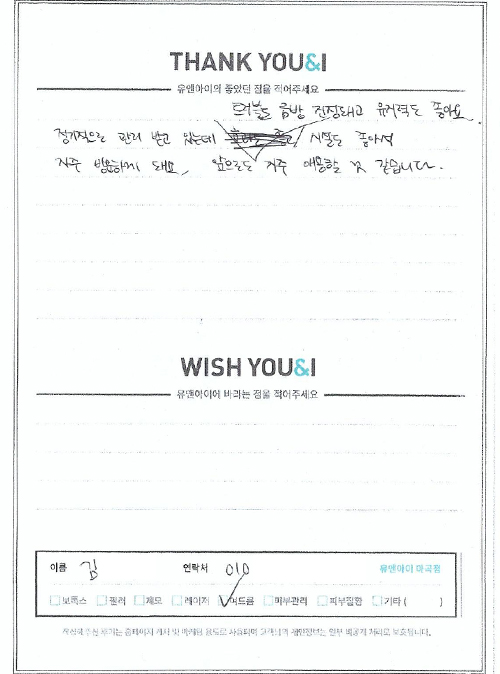 THANK YOU&I
유앤아이의 좋았던 점을 적어주세요
여드름도 금방 진정돼고 유지력도 좋아요
정기적으로 관리 받고 있는데 시설도 좋아서
자주 방문하게 돼요, 앞으로도 자주 애용할 것 같습니다.
WISH YOU&I
유앤아이에 바라는 점을 적어주세요
이름 김 연락처 010 유앤아이 마곡점
보톡스 필러 제모 레이저 여드름 피부관리 피부질환 기타 ( )
작성해주신 후기는 홈페이지 게시 및 마케팅 용도로 사용되며 고객님의 개인정보는 일부 비공개 처리로 보호됩니다.